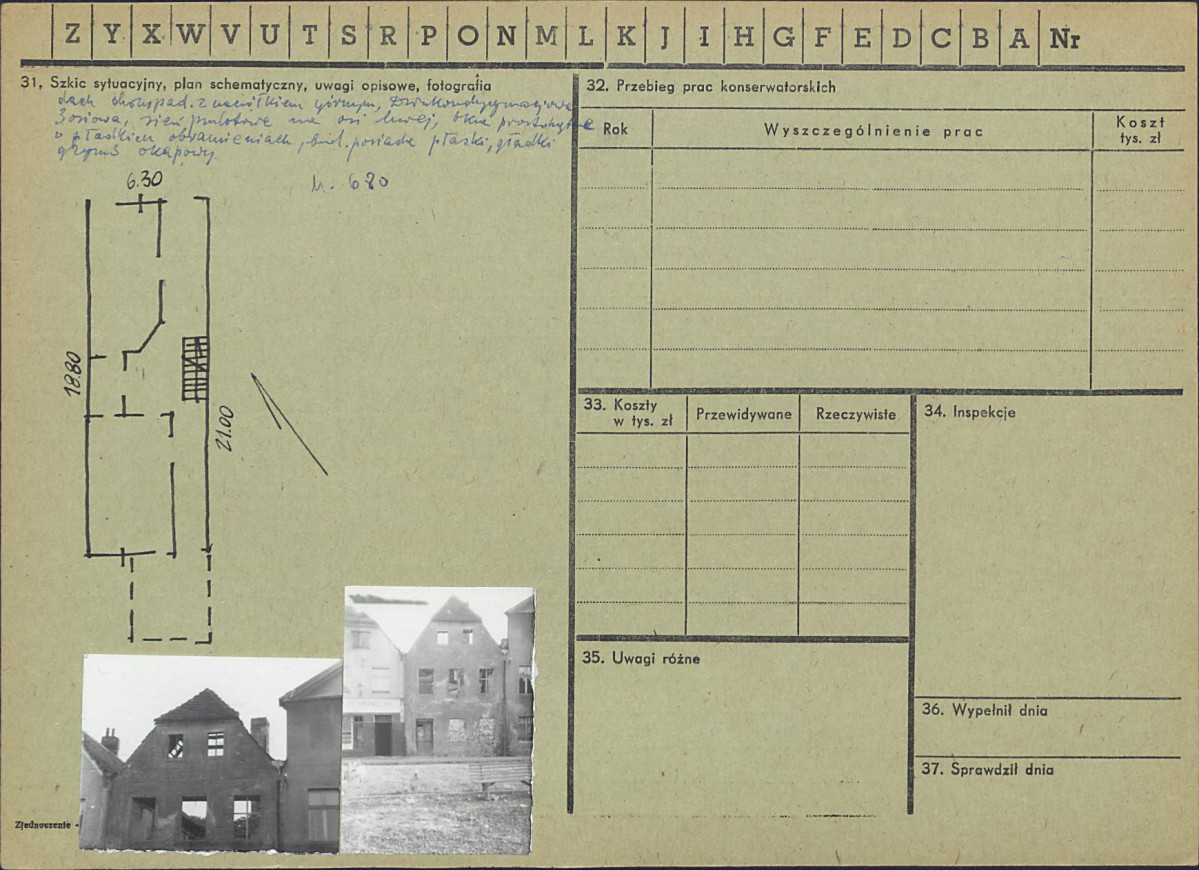 Z Y X W V U T S R P O N M L K J I H G F E D C B A Nr
31. Szkic sytuacyjny, plan schematyczny, uwagi opisowe, fotografia
dach dwuspad. z naczółkiem górnym, Dwukondygnacjowa
3osiowa, sień przelotowa na osi lewej, okna prostokątne
w płaskich obramieniach, bud. posiada płaski, gładki
gzyms okapowy.
6.30
h. 6.80
18.80
21.00
Zjednoczenie -
32. Przebieg prac konserwatorskich
Rok
Wyszczególnienie prac
Koszt
tys. zł
33. Koszty
w tys. zł
Przewidywane
Rzeczywiste
34. Inspekcje
35. Uwagi różne
36. Wypełnił dnia
37. Sprawdził dnia